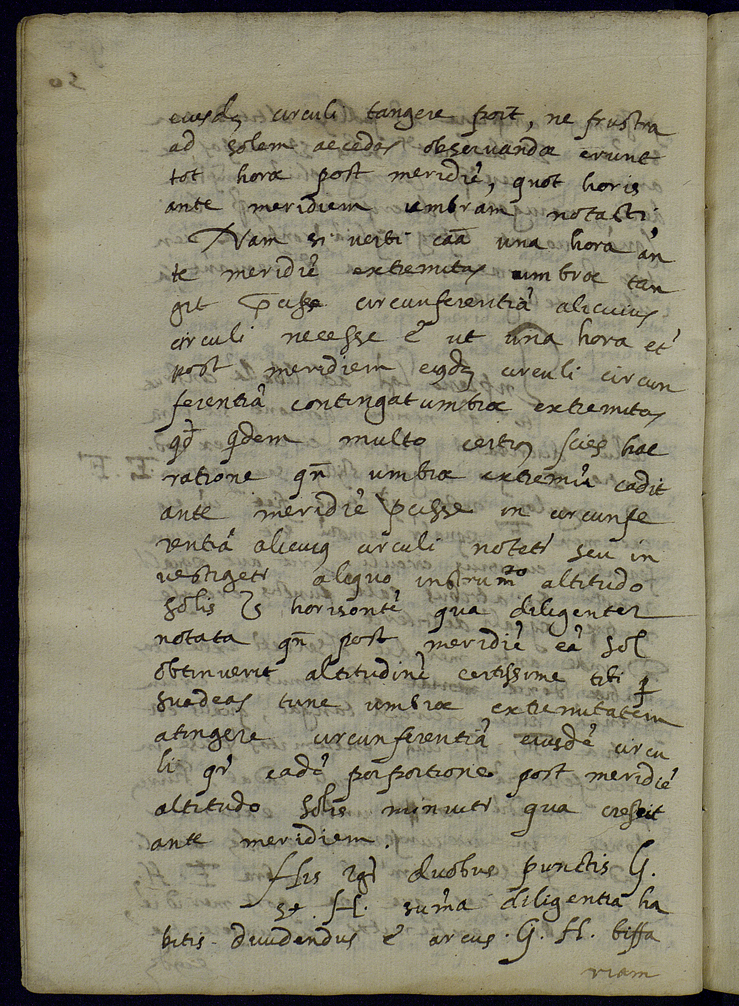 eiusdē circuli tangere pot̄, ne frustra
ad solem accedas obseruandæ erunt
tot horæ post meridiē, quot horis
ante meridiem umbram notasti.
Nam si uerbi cāā una hora an
te meridiē extremitas umbræ tan
git præcise circunferentiā alicuius
circuli necesse ē ut una hora et
post meridiem eiusdē circuli circun
ferentiā contingat umbræ extremitas
qđ qdem multo certiꝰ scies hac
ratione qn̄ umbræ extremū cadit
ante meridiē in circunfe
rentiā alicuiꝰ circuli notetr seu in
uestigetr aliquo instrumto altitudo
solis horisontē qua diligenter
notata qn̄ post meridiē eā sol
obtinuerit altitudinē certissime tibi
suadeas tunc umbræ extremitatem
atingere circunferentiā eiusdē circu
li qr̄ eadē porportione post meridiē
altitudo solis minuitr qua crescit
ante meridiem.
His igr duobus punctis G.
et. H. suma diligentia ha
bitis diuidendus ē arcus. G. H. biffa
riam
50